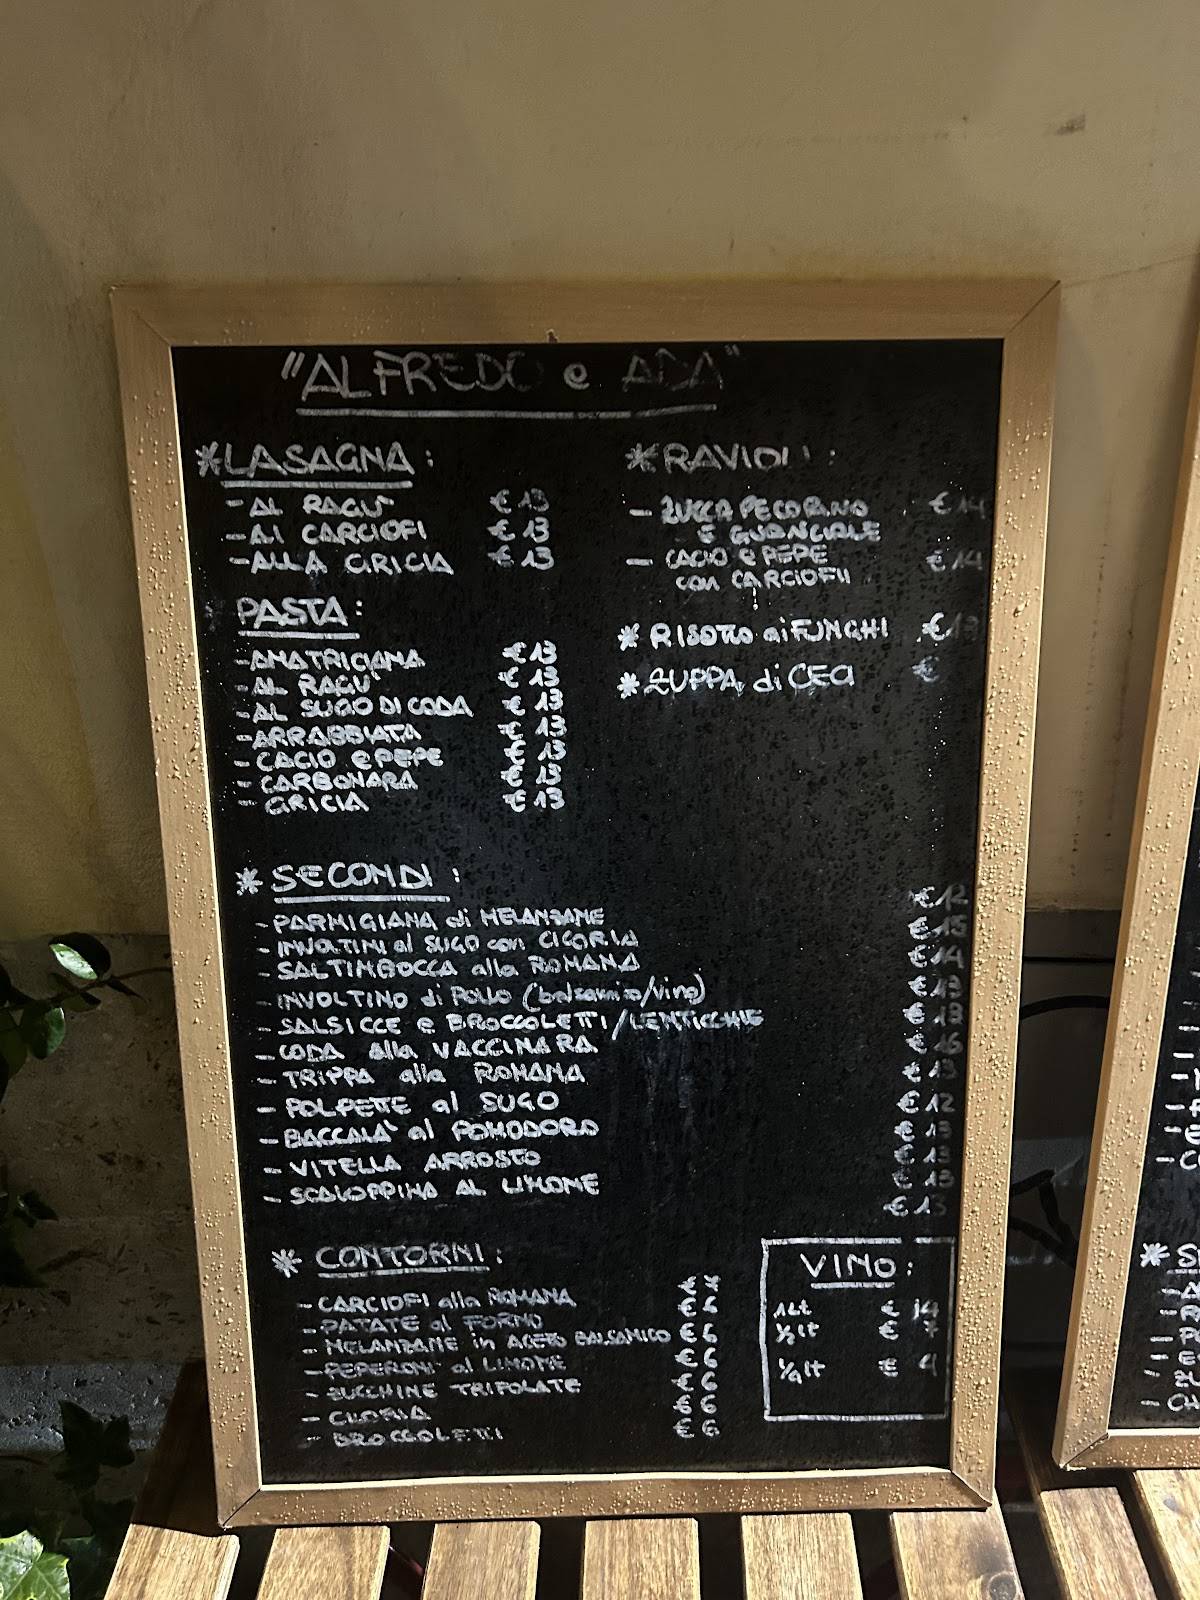 "ALFREDO e ADA"
*LASAGNA:
- AL RAGU' € 13
- AI CARCIOFI € 13
- ALLA GRICIA € 13
PASTA:
- AMATRICIANA € 13
- AL RAGU' € 13
- AL SUGO DI CODA € 13
- ARRABBIATA € 13
- CACIO e PEPE € 13
- CARBONARA € 13
- GRICIA € 13
*RAVIOLI:
- ZUCCA PECORINO € 14
E GUANCIALE
- CACIO e PEPE € 14
con CARCIOFI
* RISOTTO ai FUNGHI € 13
* ZUPPA di CECI €
* SECONDI:
- PARMIGIANA di MELANZANE € 12
- INVOLTINI al SUGO con CICORIA € 15
- SALTIMBOCCA alla ROMANA € 14
- INVOLTINO di POLLO (balsamico/vino) € 13
- SALSICCE e BROCCOLETTI/LENTICCHIE € 13
- CODA alla VACCINARA € 16
- TRIPPA alla ROMANA € 13
- POLPETTE al SUGO € 12
- BACCALA' al POMODORO € 13
- VITELLA ARROSTO € 13
- SCALOPPINA AL LIMONE € 13
€ 15
* CONTORNI:
- CARCIOFI alla ROMANA
- PATATE al FORNO
- MELANZANE in ACETO BALSAMICO € 6
- PEPERONI al LIMONE € 6
- ZUCCHINE TRIFOLATE € 6
- CICORIA € 6
- BROCCOLETTI € 6
VINO:
1 Lt € 14
1/2 lt € 7
1/4 lt € 4